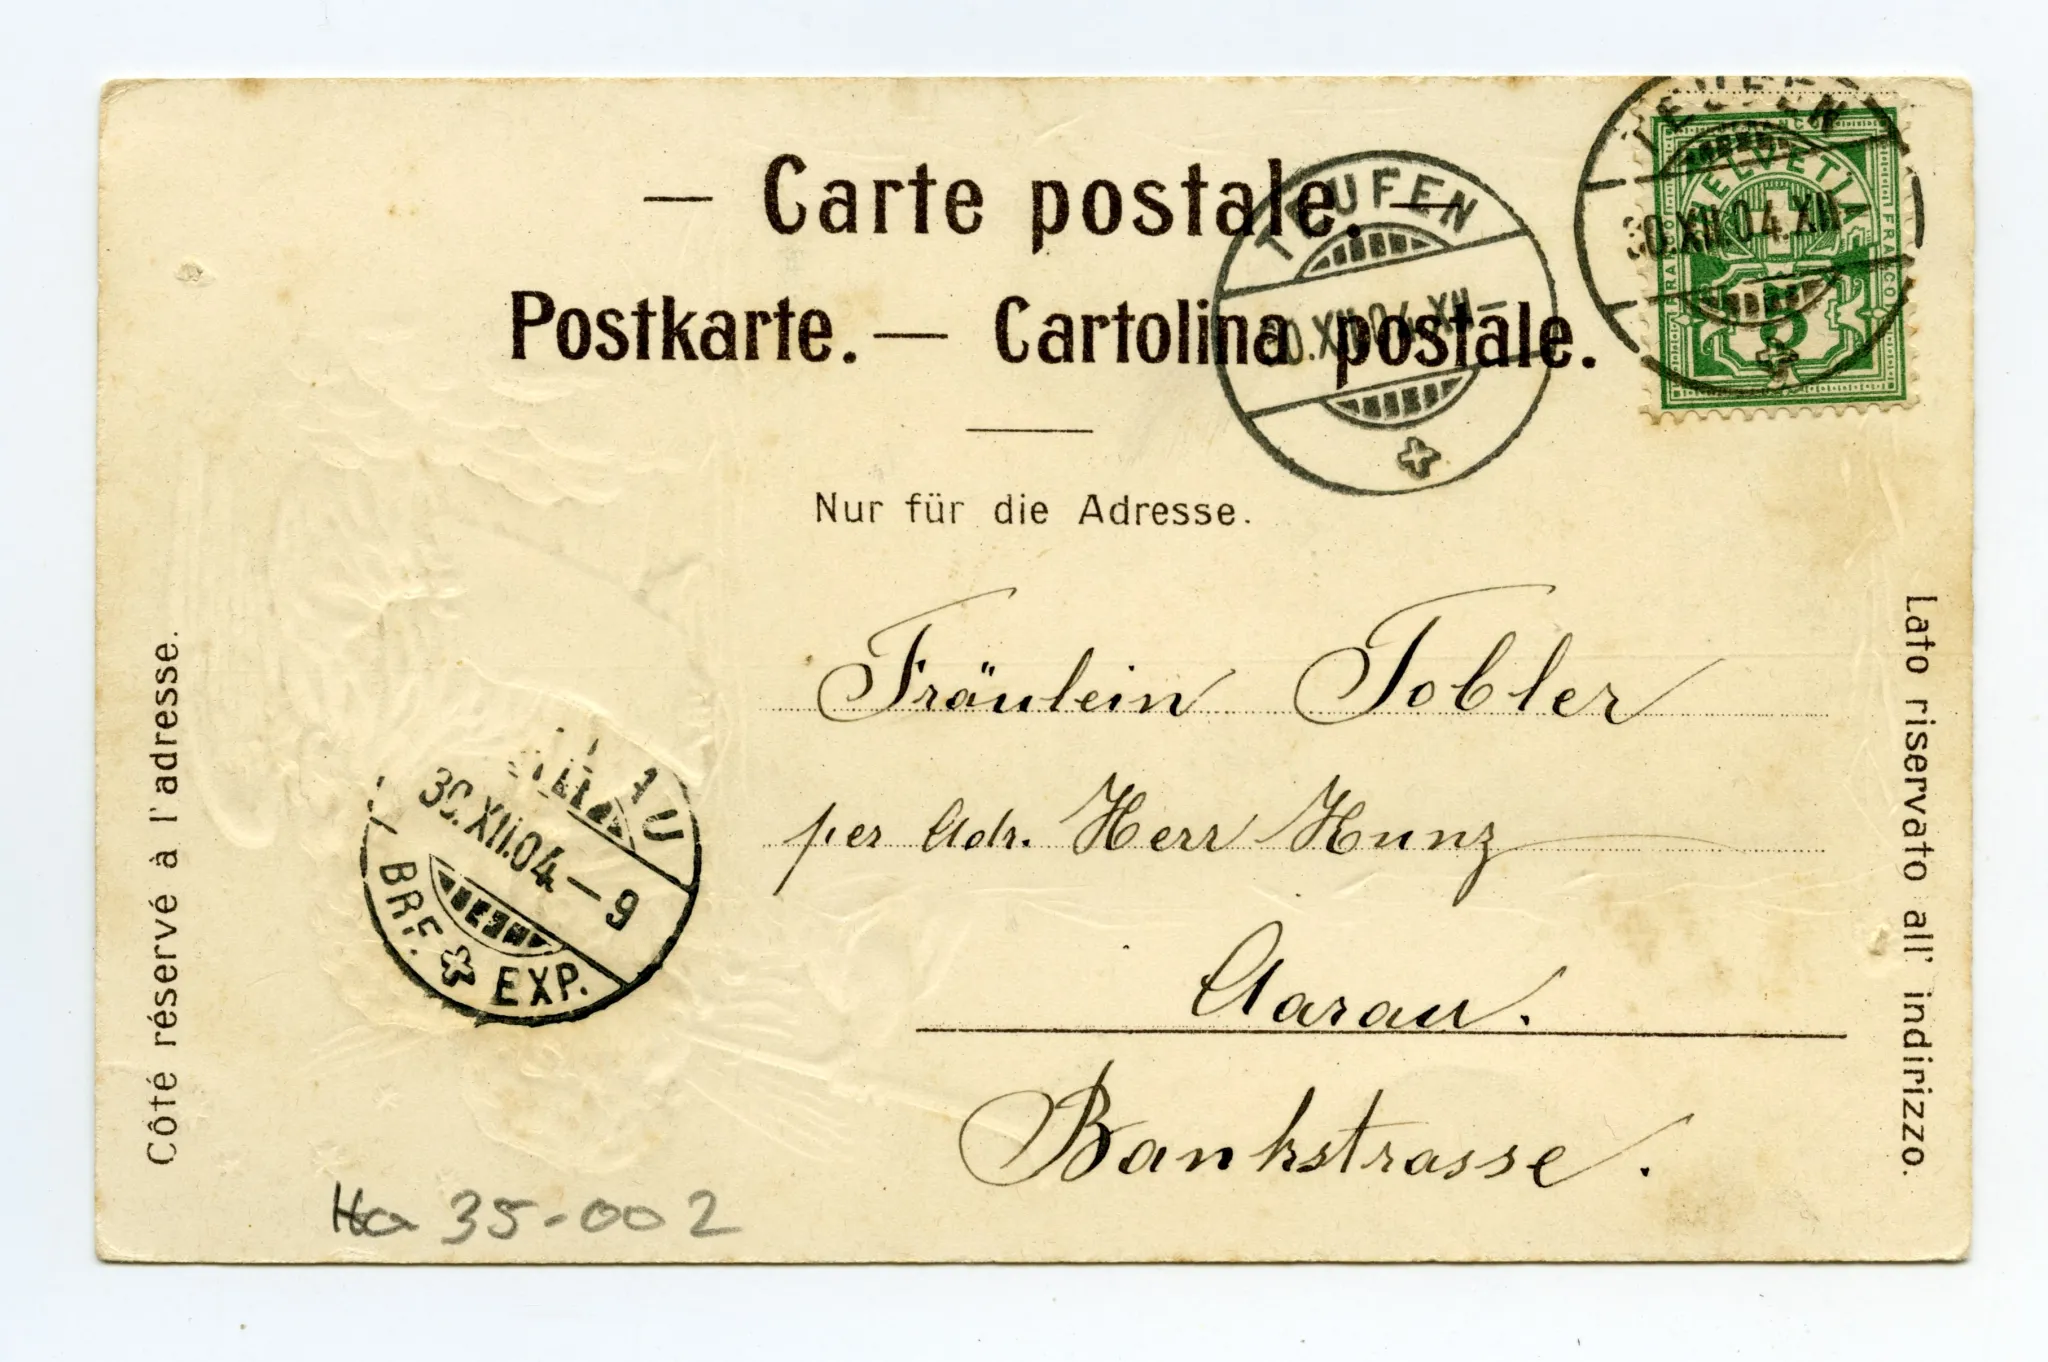 — Carte postale. —
Postkarte. — Cartolina postale.
Nur für die Adresse.
TEUFEN
30.XII.04.XII-
TEUFEN
30.XII.04.XII
HELVETIA
FRANCO
FRANCO
FRANCO
5
Fräulein Tobler
per Adr. Herr Kunz
Aarau.
Bankstrasse.
AARAU
30.XII.04-9
BRF. EXP.
Côté réservé à l'adresse.
Lato riservato all' indirizzo.
Ka 35-002